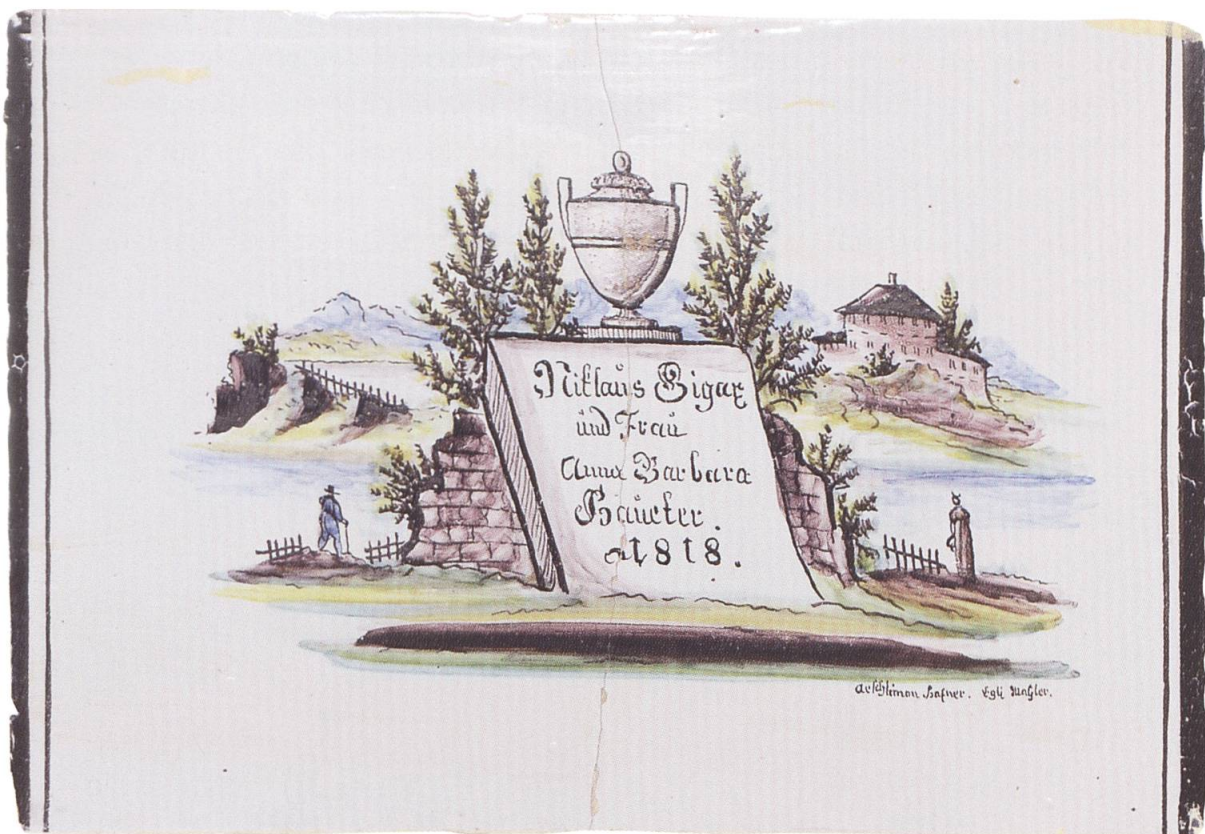 Niklaus Gigax
und Frau
Anna Barbara
Haueter.
1818.
Aeschliman Hafner. Egli Mahler.